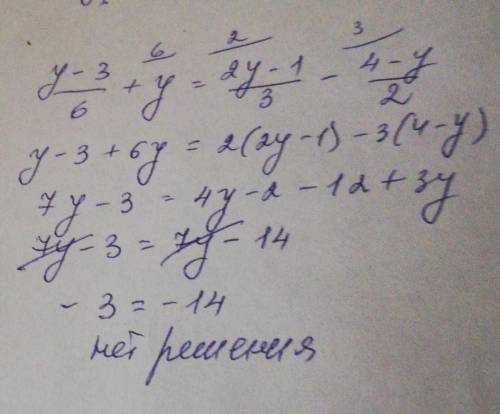 (y-3)/6 + y^6 = (2y-1)/3^2 - (4-y)/2^3
y-3+6y = 2(2y-1)-3(4-y)
7y-3 = 4y-2-12+3y
7y-3 = 7y-14
-3 = -14
нет решения